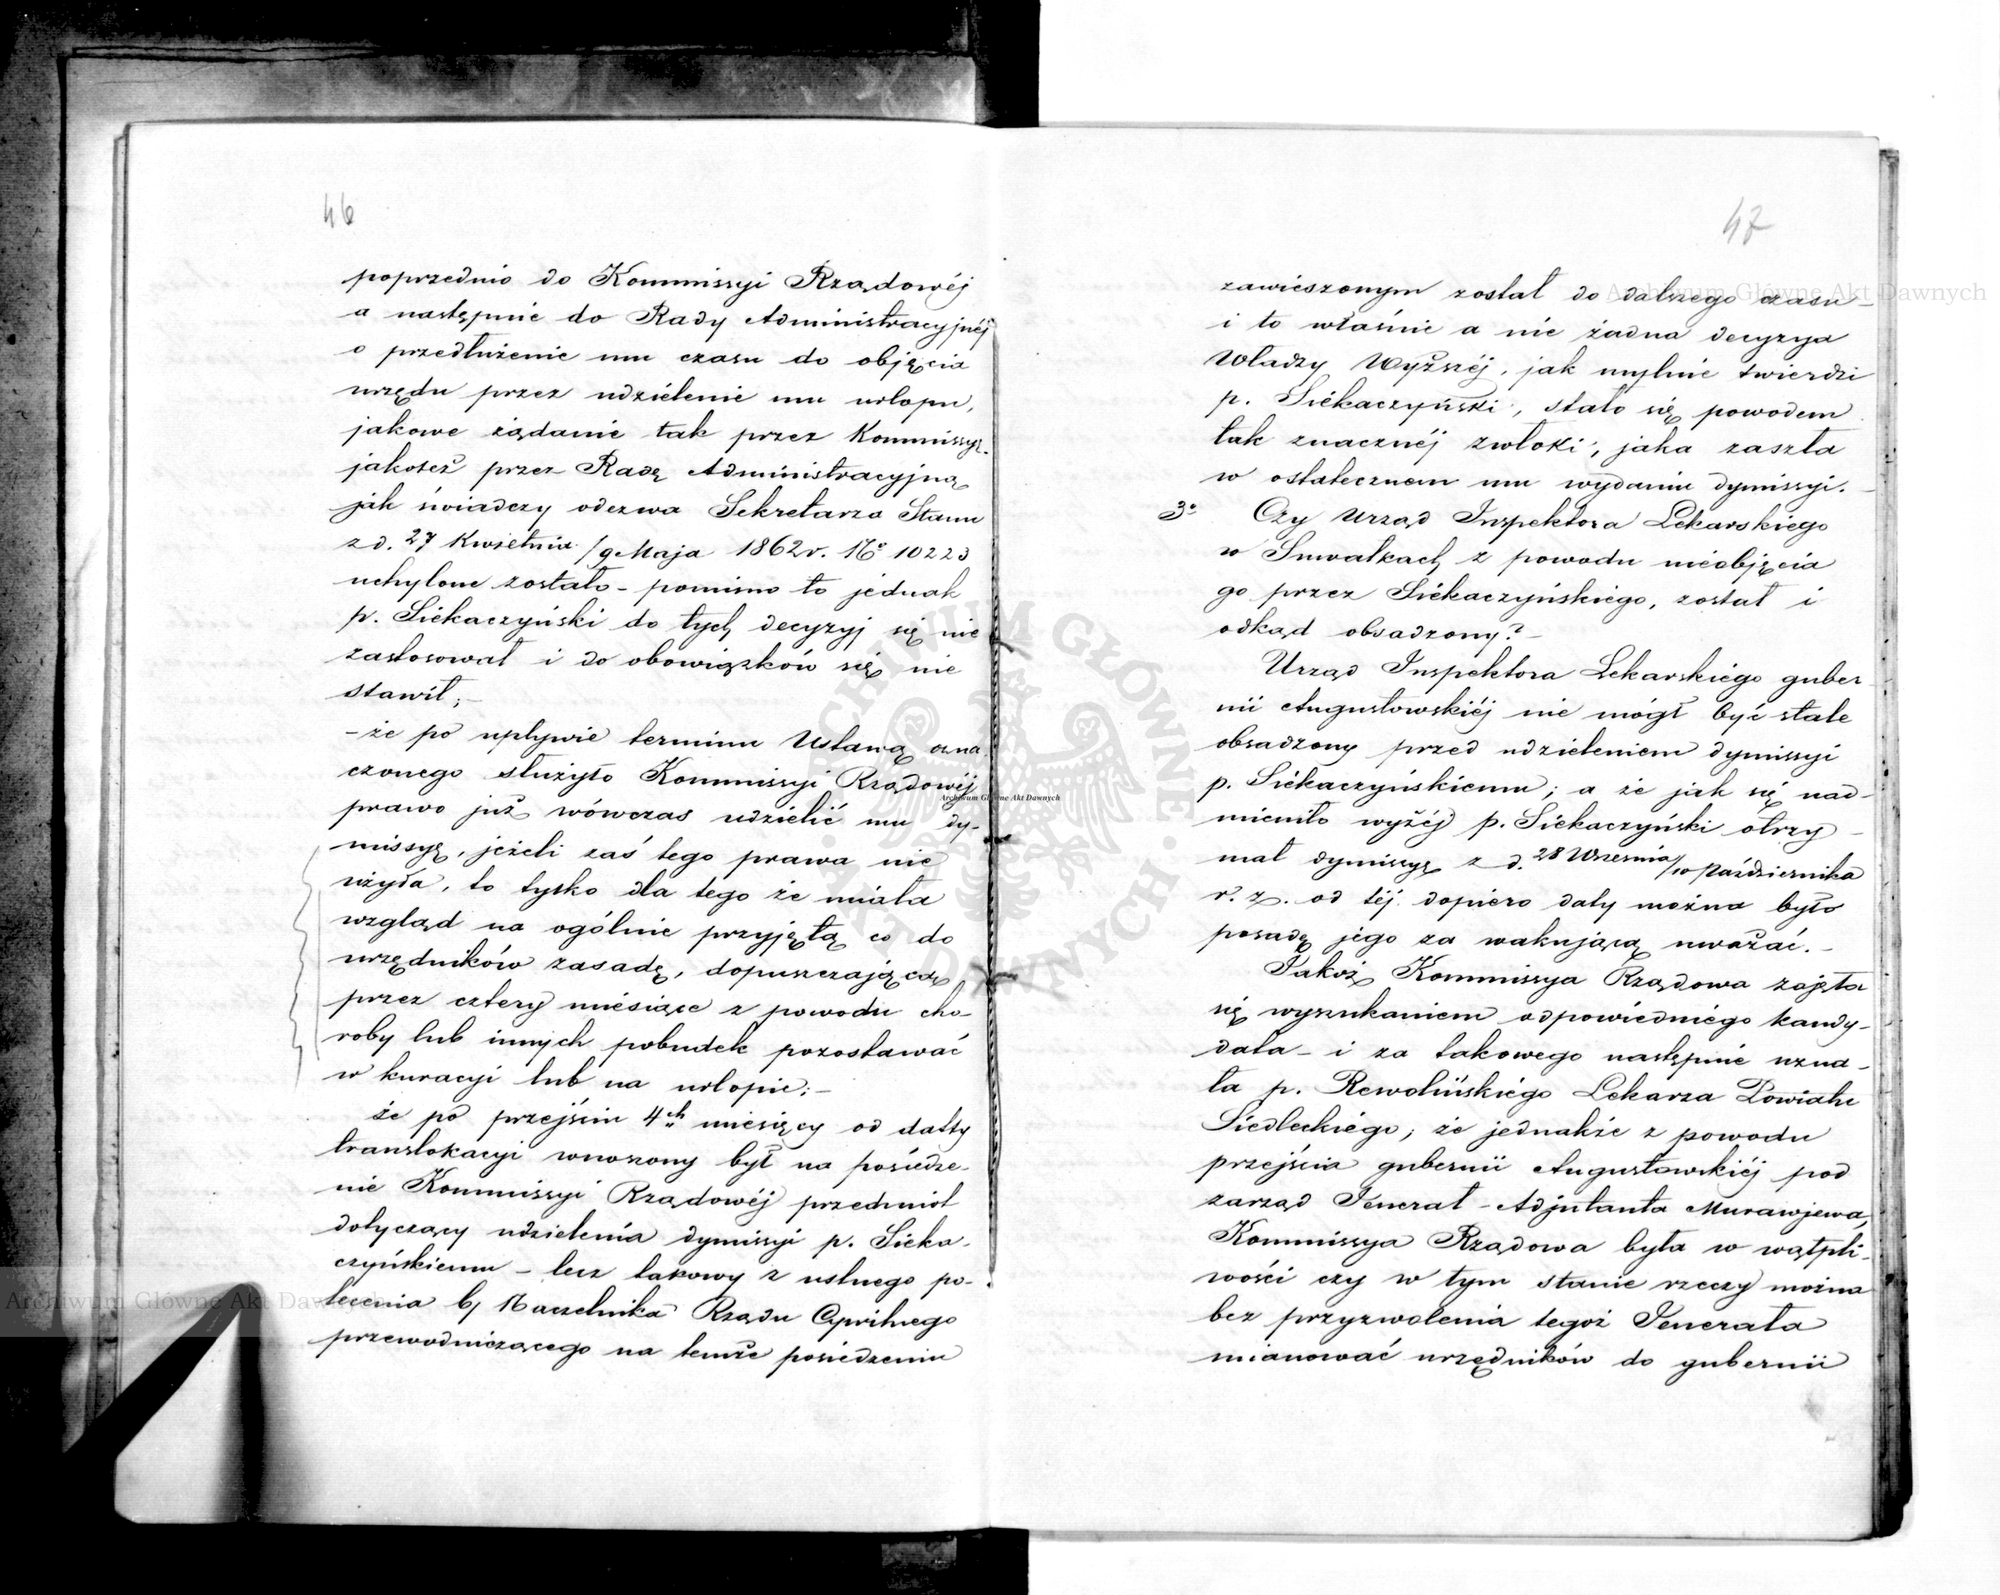 46
poprzednio do Kommissyi Rządowéj
a następnie do Rady Administracyjnéj
o przedłużenie mu czasu do objęcia
urzędu przez udzielenie mu urlopu,
jakowe żądanie tak przez Kommissyę
jakoteż przez Radę Administracyjną
jak świadczy odezwa Sekretarza Stanu
z d. 27 Kwietnia/9 Maja 1862 r. No 10223
uchylone zostało – pomimo to jednak
p. Siekaczyński do tych decyzyj się nie
zastosował i do obowiązków się nie
stawił; –
– że po upływie terminu Ustawą ozna
czonego służyło Kommissyi Rządowéj
prawo już wówczas udzielić mu dy-
missyę, jeżeli zaś tego prawa nie
użyła, to tylko dla tego że miała
wzgląd na ogólnie przyjętą co do
urzędników zasadę, dopuszczającą
przez cztery miesiące z powodu cho-
roby lub innych pobudek pozostawać
w kuracyi lub na urlopie; –
że po przejściu 4ch miesięcy od datty
translokacyi wnoszony był na posiedze-
nie Kommissyi Rządowéj przedmiot
dotyczący udzielenia dymissyi p. Sieka-
czyńskiemu – lecz takowy z ustnego po-
lecenia b. Naczelnika Rządu Cywilnego
przewodniczącego na temże posiedzeniu
47
zawieszonym został do dalszego czasu –
i to właśnie a nie żadna decyzya
Władzy Wyższéj, jak mylnie twierdzi
p. Siekaczyński, stało się powodem
tak znacznéj zwłoki, jaka zaszła
w ostatecznem mu wydaniu dymissyi. –
3o Czy Urząd Inspektora Lekarskiego
w Suwałkach z powodu nieobjęcia
go przez Siekaczyńskiego, został i
odkąd obsadzony? –
Urząd Inspektora Lekarskiego guber
nii Augustowskiéj nie mógł być stale
obsadzony przed udzieleniem dymissyi
p. Siekaczyńskiemu; a że jak się nad-
mieniło wyżéj p. Siekaczyński otrzy –
mał dymissyę z d. 28 Września/10 Października
r. z. od téj dopiero daty można było
posadę jego za wakującą uważać. –
Jakoż Kommissya Rządowa zajęła
się wyszukaniem odpowiedniego kandy-
data – i za takowego następnie uzna –
ła p. Rewolińskiego Lekarza Powiatu
Siedleckiego; że jednakże z powodu
przejścia gubernii Augustowskiéj pod
zarząd Jenerał-Adjutanta Murawjewa,
Kommissya Rządowa była w wątpli-
wości czy w tym stanie rzeczy można
bez przyzwolenia tegoż Jenerała
mianować urzędników do gubernii
Archiwum Główne Akt Dawnych
Archiwum Główne Akt Dawnych
Archiwum Główne Akt Dawnych
ARCHIWUM GŁÓWNE AKT DAWNYCH